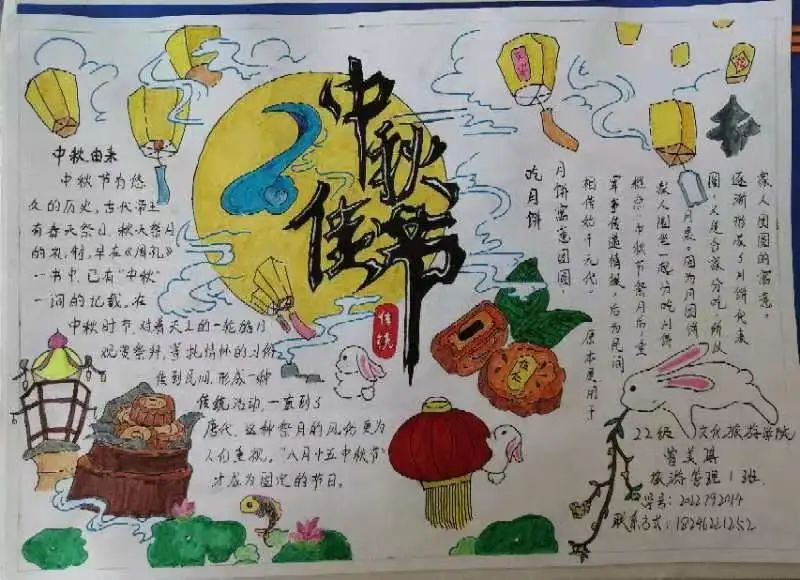 中秋佳节
传统
中秋由来
中秋节有悠
久的历史,古代帝王
有春天祭日,秋天祭月
的礼制,早在《周礼》
一书中,已有"中秋"
一词的记载。在
中秋时节,对着天上的一轮皓月
观赏祭拜,寄托情怀的习俗
传到民间,形成一种
传统活动,一直到了
唐代,这种祭月的风俗更为
人们重视。"八月十五中秋节"
才成为固定的节日。
吃月饼
月饼寓意团圆,
相传始于元代。原本是用于
军事传递情报,后为民间
家人围坐一起分吃月饼
月来。因为月圆饼
圆,又是合家分吃,所以
逐渐形成了月饼代表
家人团圆的寓意。
22级 文化旅游学院
旅游管理1班
学号:202292014
联系方式:18246221252